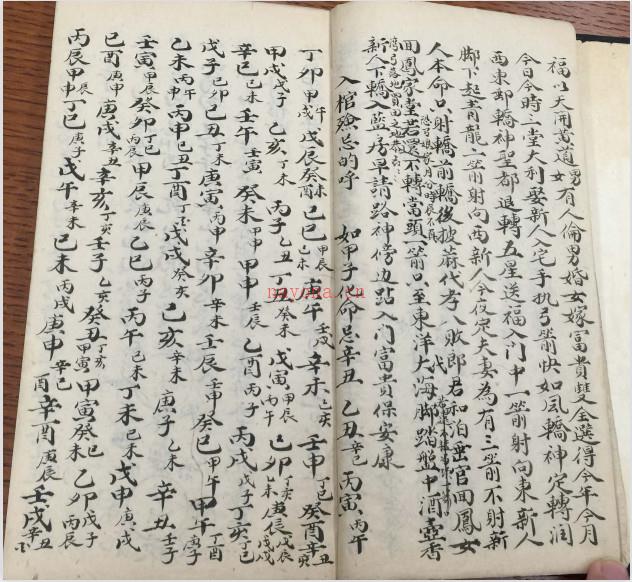 福以天開黄道男女有人倫男婚女嫁富貴雙全選得今年今月
今日今時三堂大利娶新人入宅手执弓箭快如風轎神定轉润
西東邨轎神聖都退轉五星送福入门中一箭射向東新人
脚下起青龍二箭射向西新人今夜定夫妻為有三箭不財新
人本命只射轎前轎後披蔴代孝八敗郎君和泊垂官回鳳女
回鳳家堂若還不轉當頭一箭只至東洋大海脚踏盤中酒壺香
新人下轎入藍房早請路神傍边跕入门富貴保安康
入棺殮忌的呼 如甲子化命忌辛丑 乙丑辛巳 丙寅丙午
丁卯甲午戌 戊辰癸未酉 己巳甲辰己未 庚午壬戌 辛未乙亥 壬申丁巳 癸酉辛丑亥
甲戌戊子 乙亥丁未 丙子乙丑 丁丑癸未 戊寅甲辰丙午 己卯丁亥乙未 庚辰戊辰戊戌
辛巳己未 壬午壬寅 癸未甲申 甲申壬辰 乙酉丙子 丙戌戊子 丁亥丁巳
戊子己卯 己丑丁未 庚寅丙申 辛卯辛未 壬辰壬申 癸巳甲午 甲午庚子丁酉
乙未丙午 丙申己丑 丁酉丁亥 戊戌癸亥 己亥 庚子乙未 辛丑壬子
壬寅甲辰 癸卯丁巳 甲辰庚辰 乙巳丙子 丙午己未 丁未己未 戊申庚戌
己酉庚申 庚戌辛丑 辛亥丁亥 壬子乙亥 癸丑丁亥 甲寅甲寅癸巳未 乙卯戊子丙辰
丙辰甲申辰 丁巳庚子 戊午辛未 己未丙戌 庚申辛巳 辛酉庚辰 壬戌辛丑